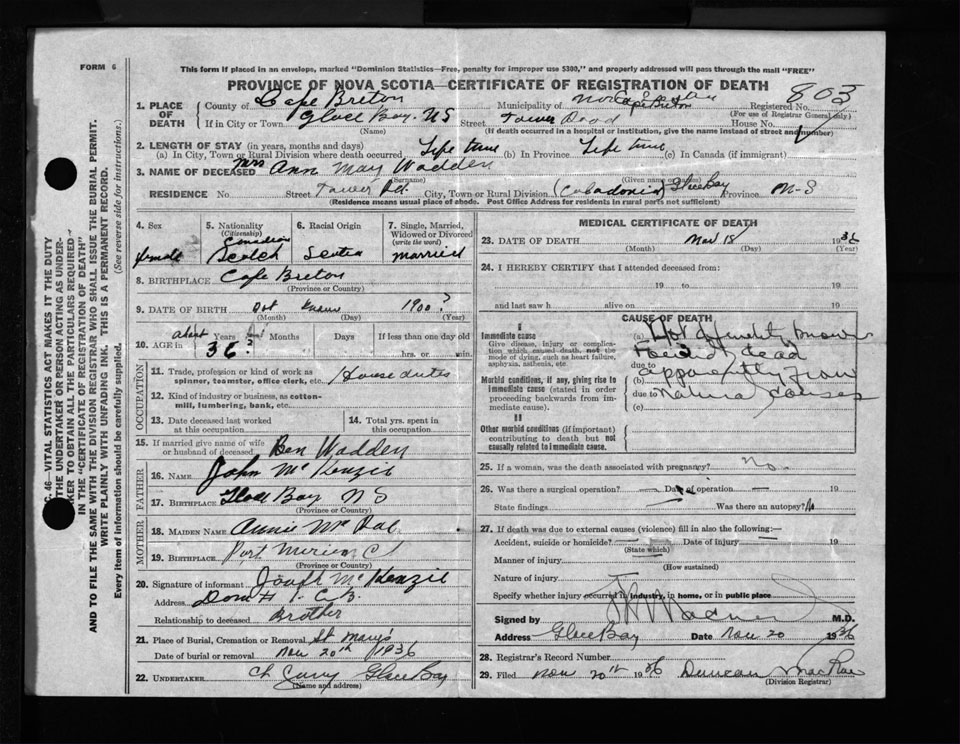 FORM 6
This form if placed in an envelope, marked "Dominion Statistics—Free, penalty for improper use $300," and properly addressed will pass through the mail "FREE"
PROVINCE OF NOVA SCOTIA—CERTIFICATE OF REGISTRATION OF DEATH
1. PLACE OF DEATH
County of Cape Breton Municipality of Cape Breton Registered No. 803
(For use of Registrar General only)
If in City or Town Glace Bay. NS Street Tower Road House No.
(Name) (If death occurred in a hospital or institution, give the name instead of street and number)
2. LENGTH OF STAY (in years, months and days)
(a) In City, Town or Rural Division where death occurred Life time (b) In Province Life time (c) In Canada (if immigrant)
3. NAME OF DECEASED Mrs Ann May Wadden
(Surname) (Given name or names)
RESIDENCE No. Street Tower Rd. City, Town or Rural Division (Caladonia) Glace Bay Province N-S
(Residence means usual place of abode. Post Office Address for residents in rural parts not sufficient)
4. Sex female
5. Nationality (Citizenship) Canadian Scotch
6. Racial Origin Scotia
7. Single, Married, Widowed or Divorced (write the word) married
8. BIRTHPLACE Cape Breton
(Province or Country)
9. DATE OF BIRTH 1900?
(Month) (Day) (Year)
10. AGE in about 36 Years Months Days If less than one day old
hrs. or min.
OCCUPATION
11. Trade, profession or kind of work as spinner, teamster, office clerk, etc. House duties
12. Kind of industry or business, as cotton-mill, lumbering, bank, etc.
13. Date deceased last worked at this occupation
14. Total yrs. spent in this occupation
15. If married give name of wife or husband of deceased Ben Wadden
FATHER
16. NAME John McKenzie
17. BIRTHPLACE Glace Bay NS
(Province or Country)
MOTHER
18. MAIDEN NAME Annie Mc
19. BIRTHPLACE Port
(Province or Country)
20. Signature of informant Joseph McKenzie
Address Dom # 1 C.B.
Relationship to deceased Brother
21. Place of Burial, Cremation or Removal St Mary's
Date of burial or removal Nov 20th 1936
22. UNDERTAKER Glace Bay
(Name and address)
MEDICAL CERTIFICATE OF DEATH
23. DATE OF DEATH Nov 18 1936
(Month) (Day) (Year)
24. I HEREBY CERTIFY that I attended deceased from:
19 to 19
and last saw h alive on 19
CAUSE OF DEATH
I
Immediate cause
Give disease, injury or complication which caused death, not the mode of dying, such as heart failure, asphyxia, asthenia, etc.
(a) Not definitely known
found dead
due to apparently from
Morbid conditions, if any, giving rise to immediate cause (stated in order proceeding backwards from immediate cause).
(b)
due to Natural causes
(c)
II
Other morbid conditions (if important) contributing to death but not causally related to immediate cause.
25. If a woman, was the death associated with pregnancy? no.
26. Was there a surgical operation? Date of operation 19
State findings Was there an autopsy? No
27. If death was due to external causes (violence) fill in also the following:—
Accident, suicide or homicide? Date of injury 19
(State which)
Manner of injury
(How sustained)
Nature of injury
Specify whether injury occurred in industry, in home, or in public place
Signed by M.D.
Address Glace Bay Date Nov 20 1936
28. Registrar's Record Number
29. Filed Nov 20th 1936 Duncan MacRae
(Division Registrar)
C. 46—VITAL STATISTICS ACT MAKES IT THE DUTY
THE UNDERTAKER OR PERSON ACTING AS UNDER-
KER TO OBTAIN ALL THE PARTICULARS REQUIRED
IN THE "CERTIFICATE OF REGISTRATION OF DEATH"
AND TO FILE THE SAME WITH THE DIVISION REGISTRAR WHO SHALL ISSUE THE BURIAL PERMIT.
WRITE PLAINLY WITH UNFADING INK. THIS IS A PERMANENT RECORD.
Every item of information should be carefully supplied. (See reverse side for instructions.)